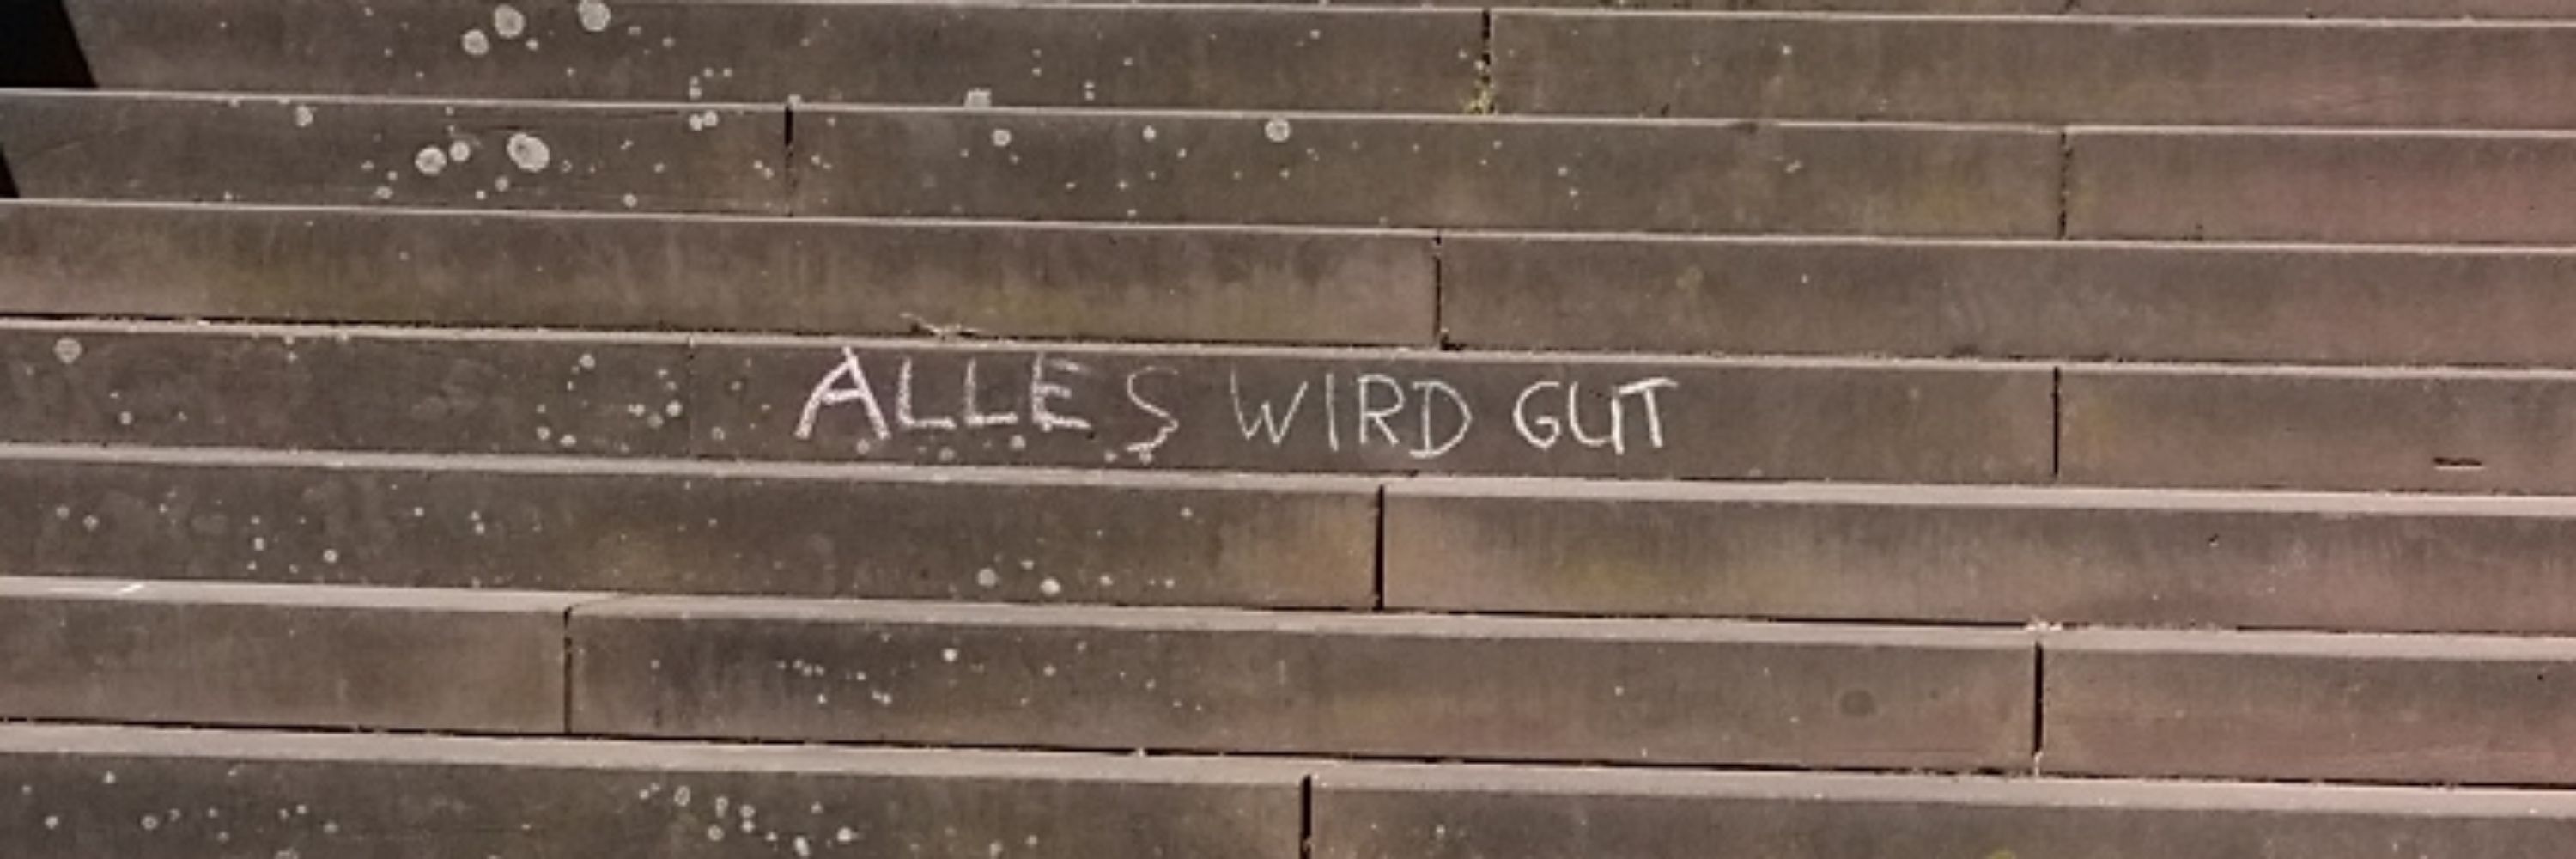 ALLES WIRD GUT